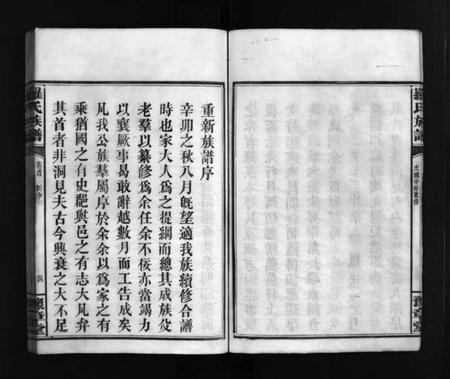 重新族譜序
辛卯之秋八月既望適我族續修合譜
時也家大人為之提綱而總其成族㕛
老羣以纂修為余任余不佞亦當竭力
以襄厥事曷敢辭越數月而工告成矣
凡我公族羣屬序於余余以為家之有
乘猶國之有史邑之有志大凡弁
其首者非洞見夫古今興衰之大不足
羅氏族譜
四
豫章堂
羅氏族譜
豫章堂